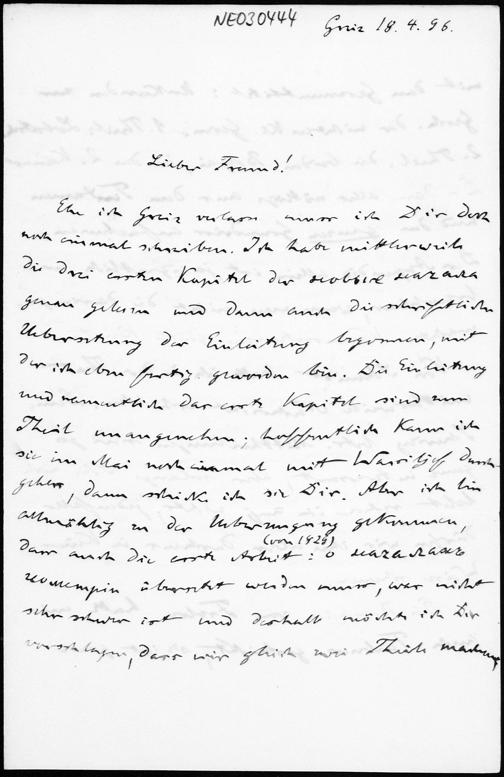 NE030444
Greiz 18. 4. 96.
Lieber Freund!
Ehe ich Greiz verlasse muss ich Dir doch
noch einmal schreiben. Ich habe mittlerweile
die drei ersten Kapitel der новыя начала
genau gelesen und dann auch die schriftliche
Uebersetzung der Einleitung begonnen, mit
der ich eben fertig geworden bin. Die Einleitung
und namentlich das erste Kapitel sind zum
Theil unangenehm; hoffentlich kann ich
sie im Mai noch einmal mit Wasiljef durch-
gehen, dann schicke ich sie Dir. Aber ich bin
allmählig zu der Ueberzeugung gekommen,
dass auch die erste Arbeit: о началахъ
(von 1829)
геометріи übersetzt werden muss, was nicht
sehr schwer ist und deshalb möchte ich Dir
vorschlagen, dass wir gleich zwei Theile machen,